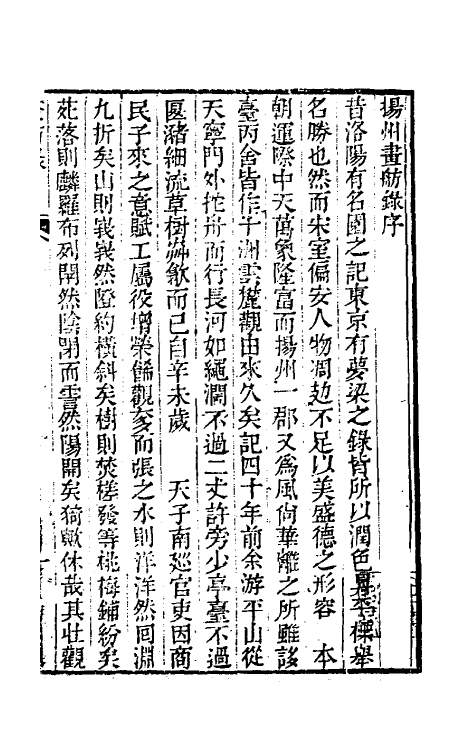 揚州畫舫錄序
昔洛陽有名園之記東京有夢梁之錄皆所以潤色昇平標舉
名勝也然而宋室偏安人物凋劫不足以美盛德之形容　本
朝運際中天萬象隆富而揚州一郡又爲風尚華離之所雖謻
臺丙舍皆作十洲雲麓觀由來久矣記四十年前余游平山從
天寧門外拕舟而行長河如繩濶不過二丈許旁少亭臺不過
匽瀦細流草樹歙而已自辛未歲　天子南巡官吏因商
民子來之意賦工屬役增榮飾觀奓而張之水則洋洋然回淵
九折矣山則峩峩然隥約橫斜矣樹則焚槎發等桃梅鋪紛矣
苑落則鱗羅布列閛然陰閉而霅然陽開矣猗歟休哉其壯觀